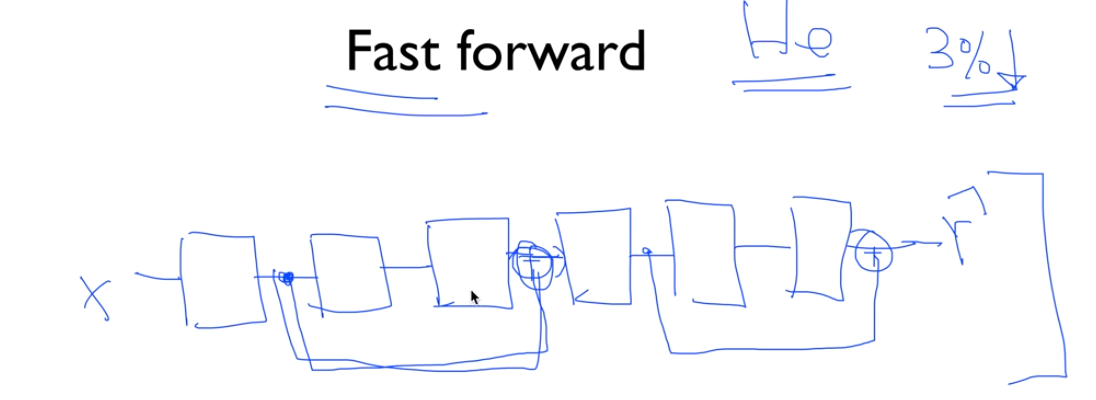 Fast forward
He
3%↓
X
+
+
Ŷ